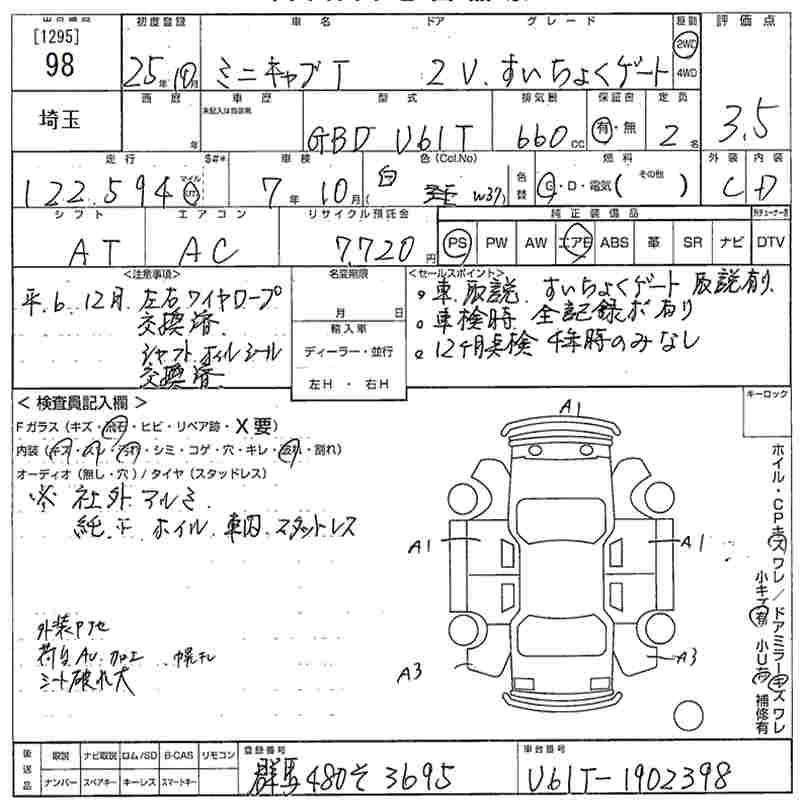 [1295]
98
初度登録
25年10月
車名
ミニキャブT
ドア
2V.
グレード
すいちょくゲート
駆動
2WD
4WD
評価点
3.5
埼玉
西暦
年
車歴
未記入は自家用
型式
GBD U61T
排気量
660CC
保証書
有・無
定員
2名
外装
C
内装
D
走行
122,594
マイル
車検
7年10月
色(Col.No)
白
W37
色替
燃料
G・D・電気( その他 )
シフト
AT
エアコン
AC
リサイクル預託金
7,720円
純正装備品
PS PW AW エアB ABS 革 SR ナビ DTV
<注意事項>
平.6.12月.左右ワイヤロープ
交換済.
シャフトホイルシール
交換済.
名変期限
月 日
輸入車
ディーラー・並行
左H ・ 右H
<セールスポイント>
車.取説. すいちょくゲート 取説有り.
車検時 全記録が有り
12ヶ月点検 4年時のみなし
<検査員記入欄>
Fガラス(キズ・飛石・ヒビ・リペア跡・X要)
内装(キズ・スレ・汚れ・シミ・コゲ・穴・キレ・破れ・割れ)
オーディオ(無し・穴)/タイヤ(スタッドレス)
※ 社外アルミ
純正ホイル.車内.スタットレス
外装
加工
シート破れ大
A1
A1
A1
A3
A3
キーロック
ホイル・CPキズワレ/ドアミラーキズワレ
小キズ有 小U有 補修有
後送品
取説 ナビ取説 ロム/SD B-CAS リモコン
ナンバー スペアキー キーレス スマートキー
登録番号
群馬480そ3695
車台番号
U61T-1902398